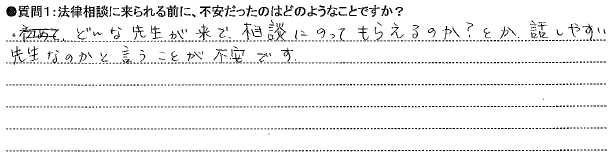 ●質問1:法律相談に来られる前に、不安だったのはどのようなことですか?
どんな先生が来て、相談にのってもらえるのか?とか、話しやすい
先生なのかと言うことが不安です